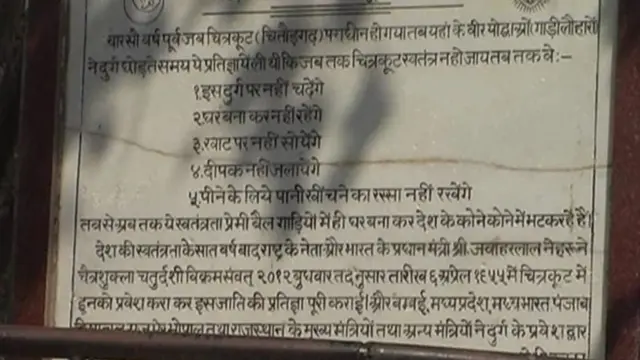 चारसौ वर्ष पूर्व जब चित्रकूट (चितौड़गढ़) पराधीन हो गया तब यहां के वीर योद्धाओं (गाड़ी लौहारों)
ने दुर्ग छोड़ते समय ये प्रतिज्ञायें ली थी कि जब तक चित्रकूट स्वतंत्र न हो जाय तब तक वे :-
१. इस दुर्ग पर नहीं चढ़ेंगे
२. घर बना कर नहीं रहेंगे
३. खाट पर नहीं सोयेंगे
४. दीपक नहीं जलायेंगे
५. पीने के लिये पानी खींचने का रस्सा नहीं रखेंगे
तब से अब तक ये स्वतंत्रता प्रेमी बैल गाड़ियों में ही घर बना कर देश के कोने कोने में भटक रहे हैं।
देश की स्वतंत्रता के सात वर्ष बाद राष्ट्र के नेता और भारत के प्रधान मंत्री श्री. जवाहरलाल नेहरू ने
चैत्र शुक्ला चतुर्दशी विक्रम संवत् २०१२ बुधवार तदनुसार तारीख ६ अप्रेल १९५५ में चित्रकूट में
इनको प्रवेश करा कर इस जाति की प्रतिज्ञा पूरी कराई। और बम्बई, मध्यप्रदेश, मध्यभारत, पंजाब
भोपाल तथा राजस्थान के मुख्य मंत्रियों तथा अन्य मंत्रियों ने दुर्ग के प्रवेश द्वार